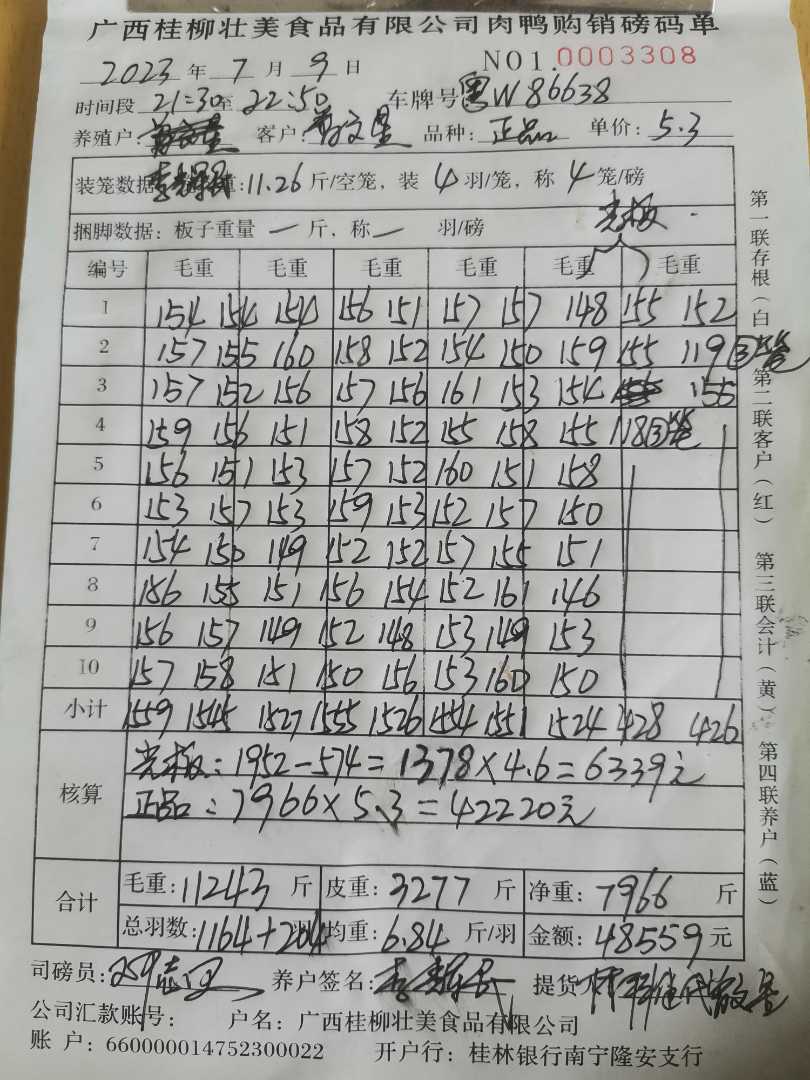 广西桂柳壮美食品有限公司肉鸭购销磅码单
2023 年 7 月 9 日 NO1. 0003308
时间段 21:30 至 22:50 车牌号 粤W86638
养殖户: 客户: 品种: 正品 单价: 5.3
装笼数据 重: 11.26 斤/空笼，装 4 羽/笼，称 4 笼/磅
捆脚数据：板子重量 一 斤，称 一 羽/磅 光板
编号 毛重 毛重 毛重 毛重 毛重 毛重
1 154 154 154 156 151 157 157 148 155 152
2 157 155 160 158 152 154 150 159 155 119③笼
3 157 152 156 157 156 161 153 154 155
4 159 156 151 158 152 155 158 155 118③笼
5 156 151 153 157 152 160 151 158
6 153 157 153 159 153 152 157 150
7 154 150 149 152 152 157 155 151
8 156 155 151 156 154 152 161 146
9 156 157 149 152 148 153 149 153
10 157 158 151 150 156 153 160 150
小计 1559 1545 1527 1555 1526 1554 1551 1524 428 426
核算 光板：1952-574=1378×4.6=6339元
正品：7966×5.3=42220元
合计 毛重: 11243 斤 皮重: 3277 斤 净重: 7966 斤
总羽数: 1164+204 羽 均重: 6.84 斤/羽 金额: 48559 元
司磅员: 养户签名: 提货人
公司汇款账号: 户名：广西桂柳壮美食品有限公司
账 户: 660000014752300022 开户行：桂林银行南宁隆安支行
第一联存根(白) 第二联客户(红) 第三联会计(黄) 第四联养户(蓝)